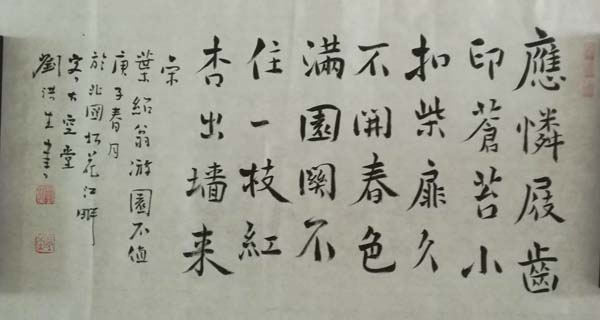 應憐屐齒
印蒼苔小
扣柴扉久
不開春色
滿園關不
住一枝紅
杏出墻来
宋
葉紹翁游園不值
庚子春月
於北國松花江畔
大空堂
劉洪生書